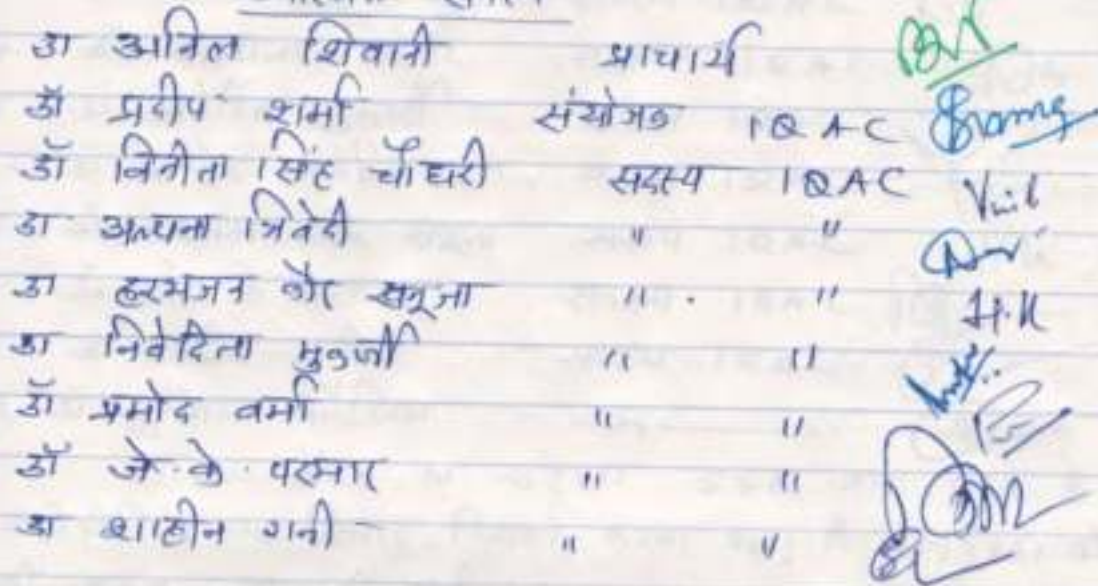 डा अनिल शिवानी प्राचार्य
डॉ प्रदीप शर्मा संयोजक IQAC Sharma
डॉ विनीता सिंह चौधरी सदस्य IQAC
डा अल्पना त्रिवेदी " "
डा हरभजन कौर सलूजा " . " H.K
डा निवेदिता मुकर्जी " "
डॉ प्रमोद वर्मा " "
डॉ जे. के. परमार " "
डा शाहीन गनी - " "